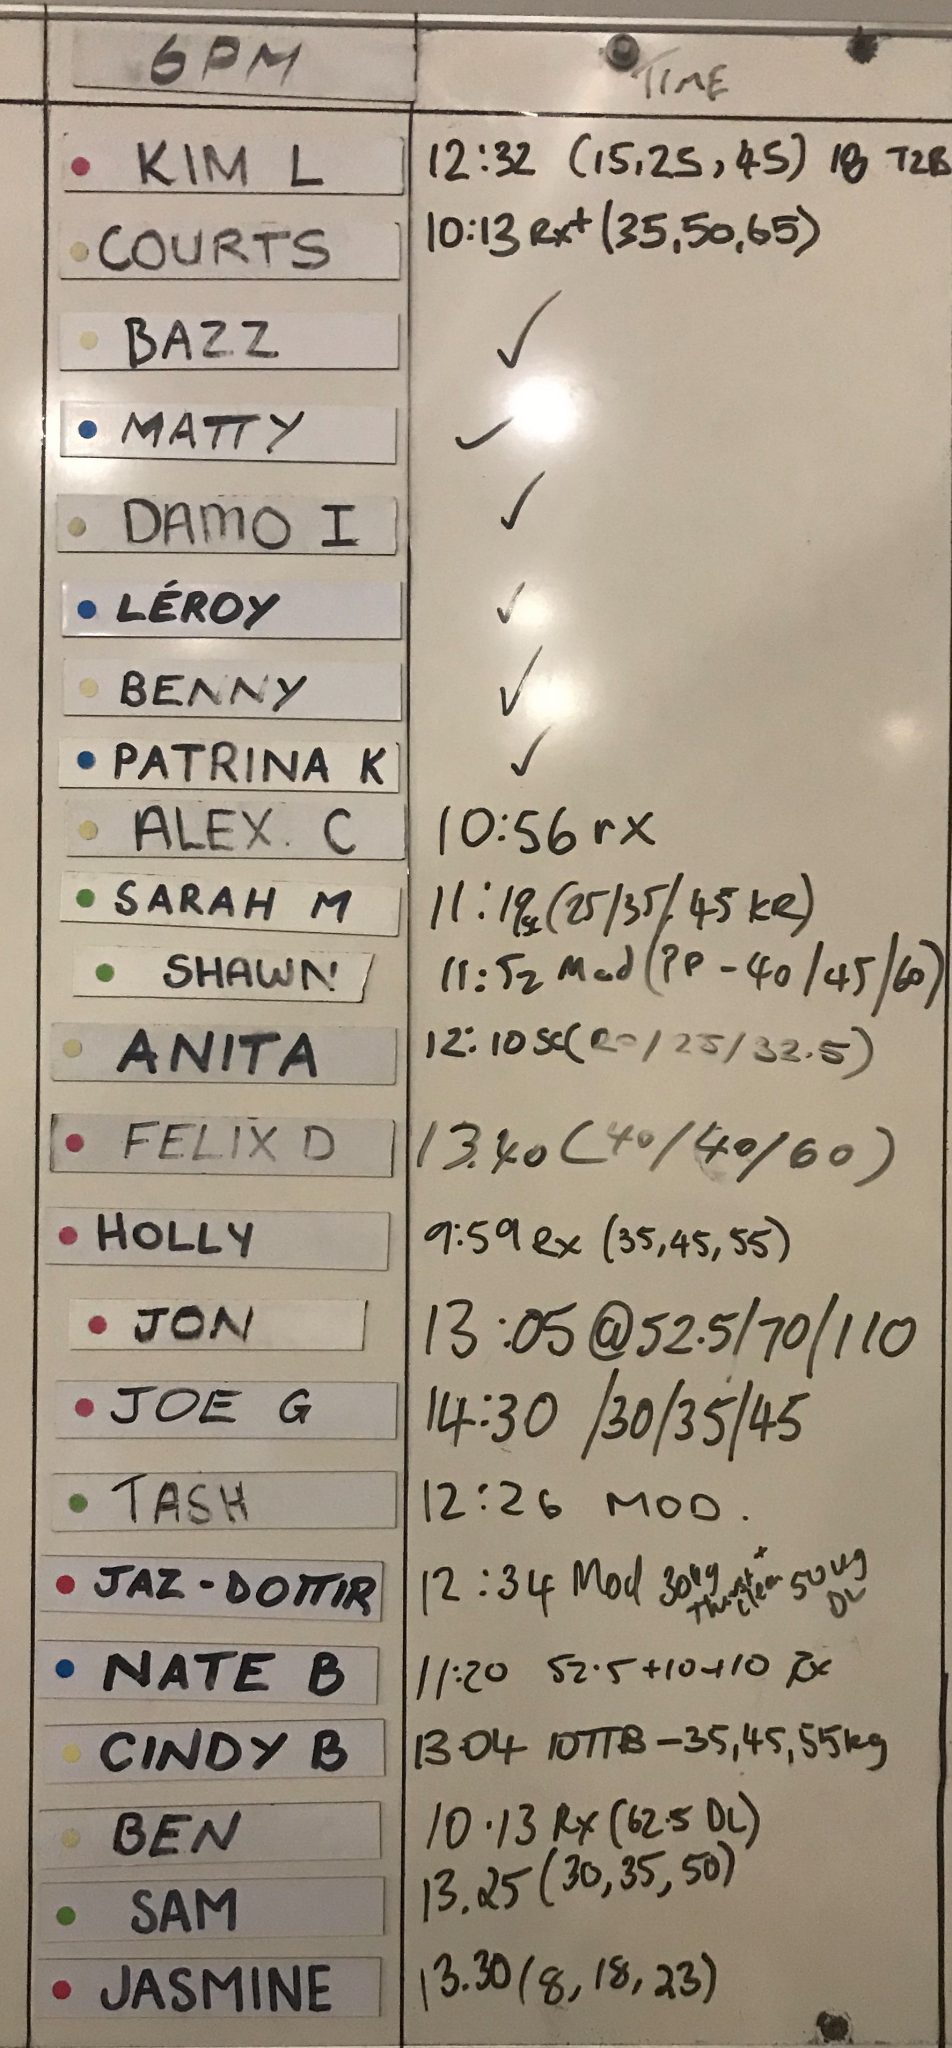 6PM TIME
KIM L 12:32 (15,25,45) 18 T2B
COURTS 10:13 Rx+ (35,50,65)
BAZZ ✓
MATTY ✓
DAMO I ✓
LÉROY ✓
BENNY ✓
PATRINA K ✓
ALEX. C 10:56 rx
SARAH M 11:19 (25/35/45 KR)
SHAWN 11:52 Mod (PP - 40/45/60)
ANITA 12:10 sc( 20/25/32.5)
FELIX D 13.40 (40/40/60)
HOLLY 9:59 Rx (35,45,55)
JON 13:05 @52.5/70/110
JOE G 14:30 /30/35/45
TASH 12:26 MOD.
JAZ-DOTTIR 12:34 Mod 30kg Thrust + clean 50kg DL
NATE B 11:20 52.5+10+10 Rx
CINDY B 13 04 10TTB - 35,45,55kg
BEN 10.13 Rx (62.5 DL)
SAM 13.25 (30,35,50)
JASMINE 13.30 (8,18,23)